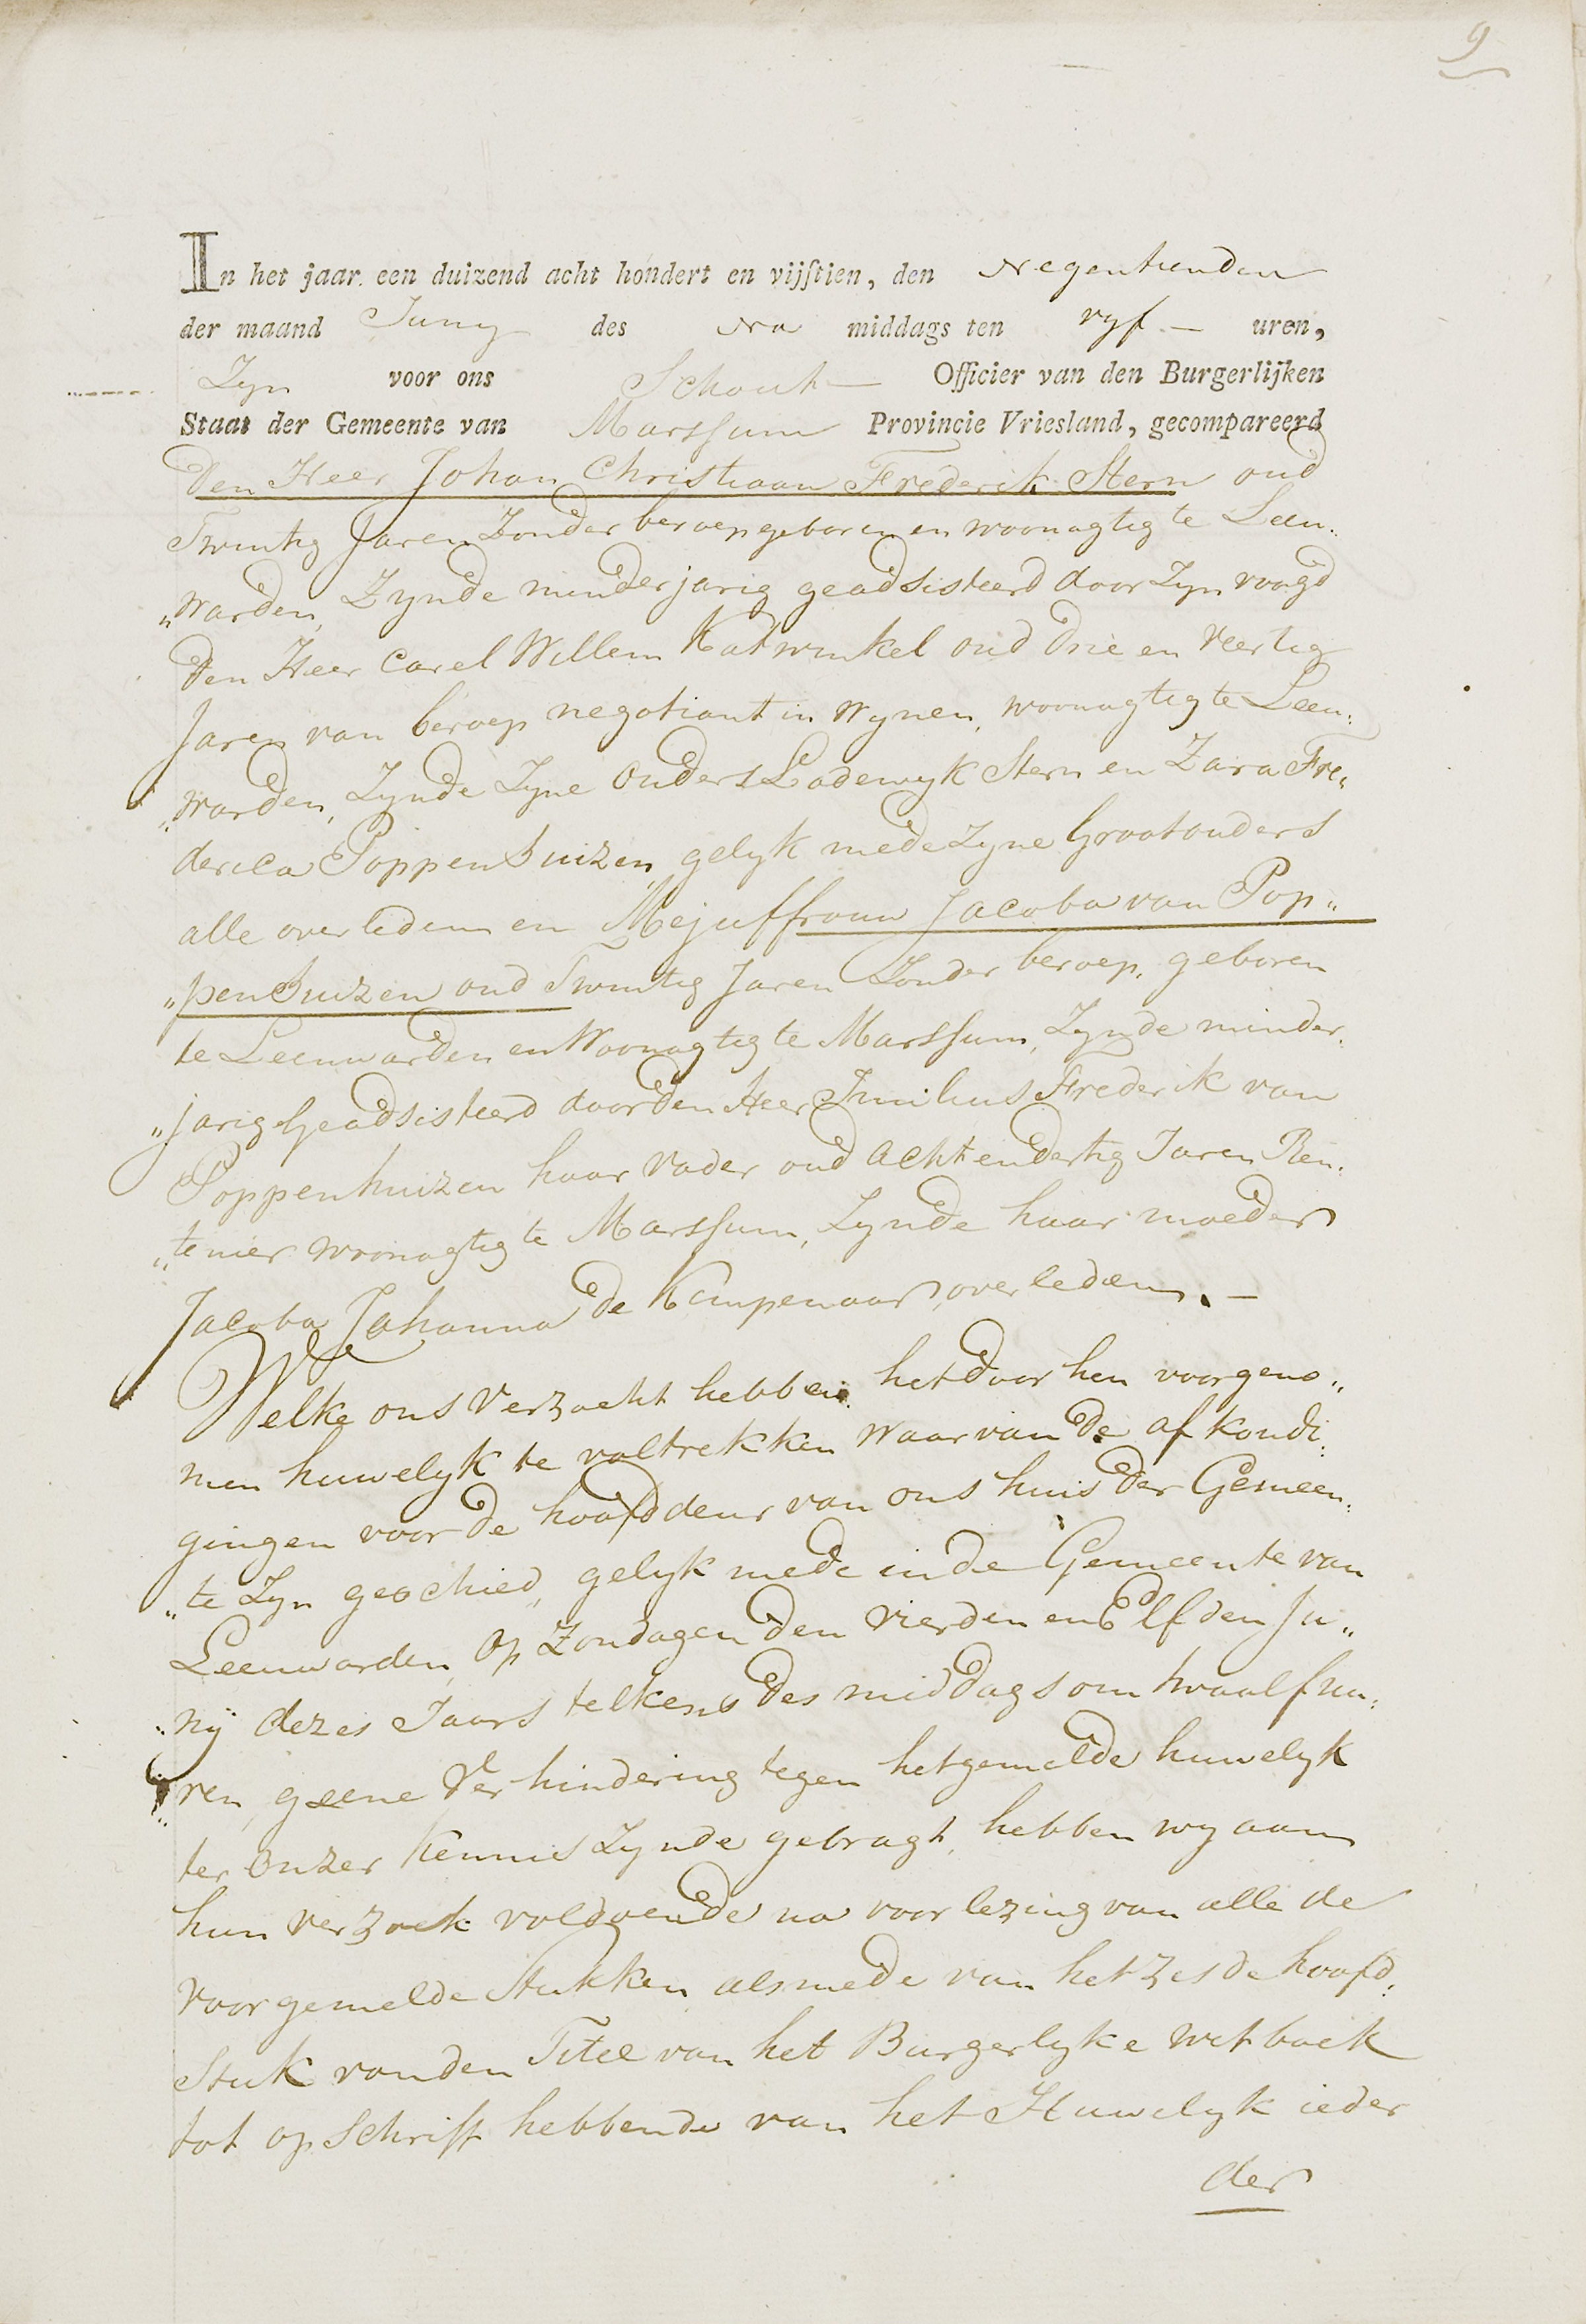 9
In het jaar een duizend acht hondert en vijftien, den Negentienden
der maand Juny des Na middags ten vyf – uren,
Zyn voor ons Schout – Officier van den Burgerlijken
Staat der Gemeente van Marssum Provincie Vriesland, gecompareerd
Den Heer Johan Christiaan Frederik Stern oud
Twintig Jaren Zonder beroep geboren en woonagtig te Leeu„
„warden, Zynde minderjarig geadsisteerd door Zyn voogd
Den Heer Carel Willem Katwinkel oud Drie en Veertig
Jaren van beroep negotiant in Wynen, woonagtig te Leeu„
„warden, Zynde Zyne Ouders Lodewyk Stern en Zara Fre„
derica Poppenhuizen gelyk mede Zyne Grootouders
alle overledenen en Mejuffrouw Jacoba van Pop„
„penhuizen oud Twintig Jaren Zonder beroep, geboren
te Leeuwarden en Woonagtig te Marssum, Zynde minder„
„jarig Geadsisteerd door Den Heer Frederik van
Poppenhuizen haar Vader oud Acht en Dertig Jaren Ren„
„tenier woonagtig te Marssum, Zynde haar moeder
Jacoba Johanna de Kempenaar, overleden. –
Welke ons Verzocht hebben het Door hen voorgeno„
men huwelyk te voltrekken waarvan De afkondi„
gingen voor De hoofddeur van ons huis Der Gemeen„
„te Zyn geschied, gelyk mede in de Gemeente van
Leeuwarden, Op Zondagen Den Vierden en Elfden Ju„
„nij dezes Jaars telkens Des middags om twaalf uu„
„ren, geene Verhindering tegen het gemelde huwelyk
ter Onzer Kennis Zynde gebragt, hebben wy aan
hun Verzoek voldoende na voorlezing van alle de
Voorgemelde Stukken alsmede van het Zesde hoofd„
Stuk van den Titel van het Burgerlyke Wetboek
tot opschrift hebbende van het Huwelyk ieder
der